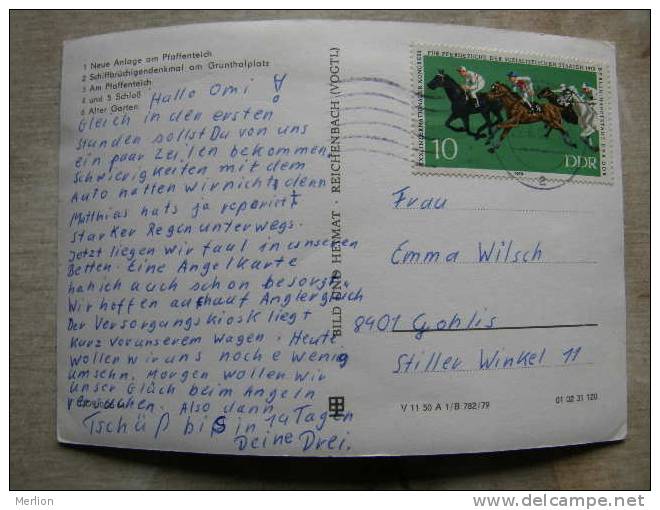 1 Neue Anlage am Pfaffenteich
2 Schiffbrüchigendenkmal am Grunthalplatz
3 Am Pfaffenteich
4 und 5 Schloß
6 Alter Garten
Hallo Omi!
Gleich in den ersten
Stunden sollst Du von uns
ein paar Zeilen bekommen.
Schwierigkeiten mit dem
Auto hatten wir nicht, denn
Matthias hats ja repariert
Starker Regen unterwegs.
Jetzt liegen wir faul in unseren
Betten. Eine Angelkarte
hab ich auch schon besorgt.
Wir hoffen auf Anglerglück
Der Versorgungskiosk liegt
kurz vor unserem Wagen. Heute
wollen wir uns noch e wenig
umsehn. Morgen wollen wir
unser Glück beim Angeln
versuchen. Also dann
Tschüß bis in 14 Tagen
Deine Drei.
BILD UND HEIMAT · REICHENBACH (VOGTL)
10
DDR
1979
Frau
Emma Wilsch
8401 Gohlis
Stiller Winkel 11
V 11 50 A 1/B 782/79
01 02 31 120
Merlion
www.delcampe.net